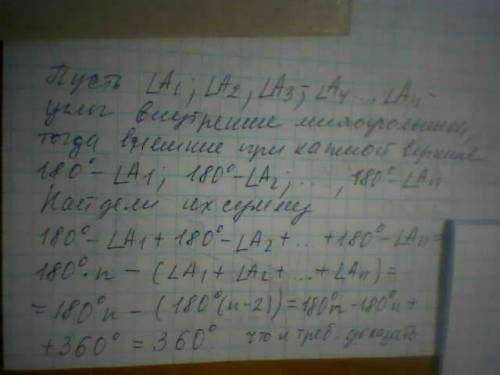 Пусть ∠A₁; ∠A₂, ∠A₃; ∠A₄ ... ∠Aₙ -
углы внутренние многоугольника,
тогда внешние при каждой вершине
180° - ∠A₁; 180° - ∠A₂; ... , 180° - ∠Aₙ
Найдем их сумму
180° - ∠A₁ + 180° - ∠A₂ + ... + 180° - ∠Aₙ =
180°·n - (∠A₁ + ∠A₂ + ... + ∠Aₙ) =
= 180°n - (180°(n-2)) = 180°n - 180°n +
+ 360° = 360° что и треб. доказать